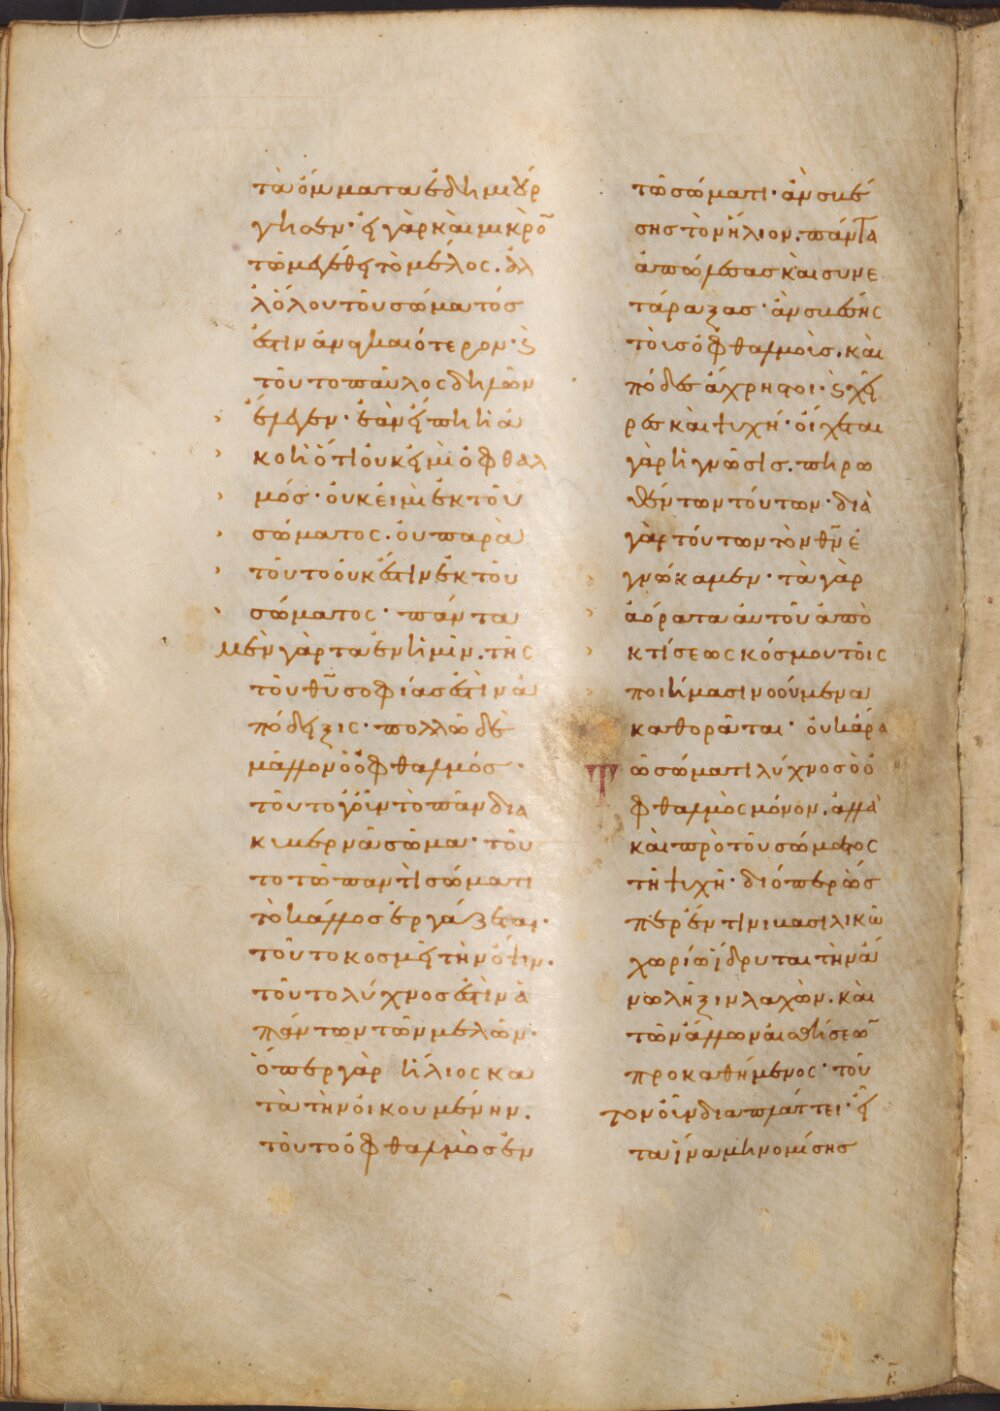 τὰ ὄμματα ἐδημιούρ
γησεν· εἰ γὰρ καὶ μικρὸ̄
τῶ μεγέθει τὸ μέλος. ἀλ
λ' ὅλου τοῦ σώματός
ἐστιν ἀναγκαιότερον· ϗ
τοῦτο παῦλος δηλῶν
ἔλεγεν· ἐὰν εἴπηι ἡ ἀ
κοὴ ὅτι οὐκ εἰμὶ ὀφθαλ
μός· οὐκ εἰμὶ ἐκ τοῦ
σώματος. οὐ παρὰ
τοῦτο οὐκ ἔστιν ἐκ τοῦ
σώματος· πάντα
μὲν γὰρ τὰ ἐν ἡμῖν. τῆς
τοῦ θῦ σοφίας ἐστὶν ἀ
πόδειξις· πολλῶ δὲ
μᾶλλον ὁ ὀφθαλμός·
τοῦτο γοῦν τὸ πᾶν δια
κυβερνᾶ σῶμα· τοῦ
το τῶ παντὶ σώματι
τὸ κάλλος ἐργάζεται·
τοῦτο κοσμεῖ τὴν ὄψιν·
τοῦτο λύχνος ἐστὶν ἁ
πάντων τῶν μελῶν·
ὅπερ γὰρ ἥλιος κα
τὰ τὴν οἰκουμένην.
τοῦτο ὀφθαλμὸς ἐν
τῶ σώματι· ἂν σβέ
σης τὸν ἥλιον. πάντα
ἀπώλεσας καὶ συνε
τάραξας· ἂν σβέσης
τοὺς ὀφθαλμοὺς. καὶ
πόδες ἄχρηστοι· ϗ χεῖ
ρες καὶ ψυχή· οἴχεται
γὰρ ἡ γνῶσις. πηρω
θέντων τούτων· διὰ
γὰρ τούτων τὸν θν̄ ἐ
γνώκαμεν· τὰ γὰρ
ἀόρατα αὐτοῦ ἀπὸ
κτίσεως κόσμου τοῖς
ποιήμασι νοούμενα
καθορᾶται· οὐκ ἄρα
τῶ σώματι λύχνος ὁ ὀ
φθαλμὸς μόνον. ἀλλὰ
καὶ πρὸ τοῦ σώματος
τῆ ψυχῆ· διόπερ ὡς
περ ἔν τινι βασιλικῶ
χωρίω ἵδρυται τὴν ἄ
νω λῆξιν λαχὼν. καὶ
τῶν ἄλλων αἰσθήσεω̄
προκαθήμενος· τοῦ
τον οὖν διαπλάττει· εἶ
τα ἵνα μὴ νομίσης